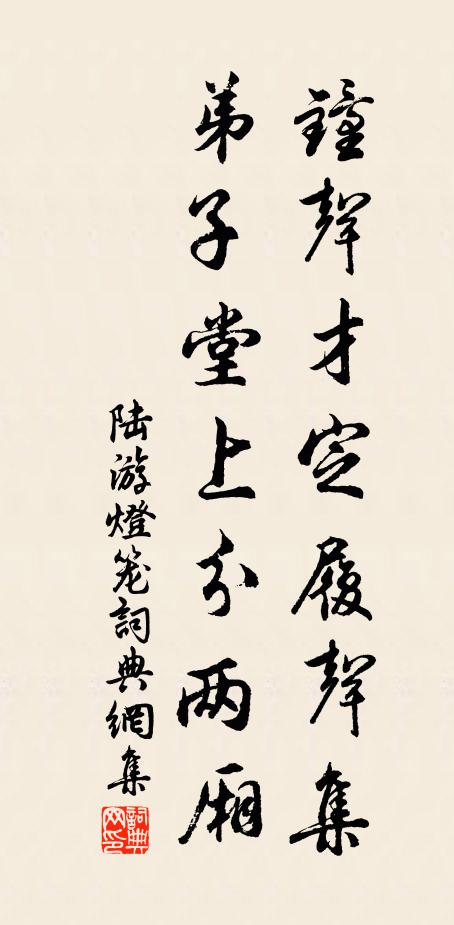 鐘聲才定履聲集
弟子堂上分两厢
陆游燈笼詞典網集
詞典网印